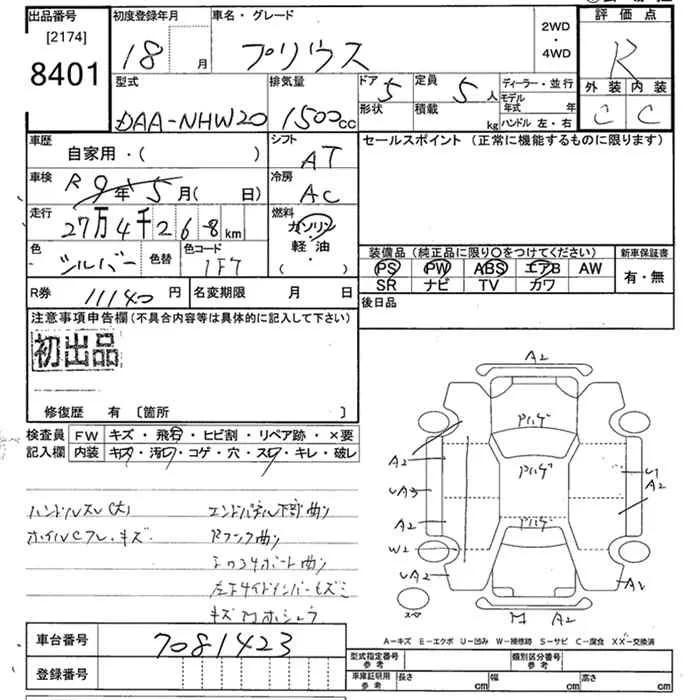 出品番号
[2174]
8401
初度登録年月
18 月
車名・グレード
プリウス
2WD
・
4WD
評価点
R
外装 内装
C C
型式
DAA-NHW20
排気量
1500cc
ドア 5
形状
定員 5人
積載 kg
ディーラー・並行
モデル年式 年
ハンドル 左・右
車歴
自家用・( )
シフト
AT
セールスポイント (正常に機能するものに限ります)
車検 R9年5月( 日)
冷房
AC
走行 27万4千268km
燃料
ガソリン
軽油
・( )
色 シルバー
色替
色コード
1F7
装備品 (純正品に限り〇をつけてください)
PS PW ABS エアB AW
SR ナビ TV カワ
新車保証書
有・無
R券 11140円
名変期限 月 日
後日品
注意事項申告欄(不具合内容等は具体的に記入して下さい)
初出品
修復歴 有 [箇所 ]
検査員記入欄
FW キズ・飛石・ヒビ割・リペア跡・×要
内装 キズ・汚レ・コゲ・穴・スレ・キレ・破レ
ハンドルスレ(大)
エンドパネル下部曲り
Rフロア曲り
A2
A2
UA3
A2
W2
UA2
U1
A2
A2
A2
A-キズ E-エクボ U-凹み W-補修跡 S-サビ C-腐食 XX-交換済
車台番号 7081423
登録番号
型式指定番号
参考
類別区分番号
参考
車庫証明用
参考
長さ cm
幅 cm
高さ cm